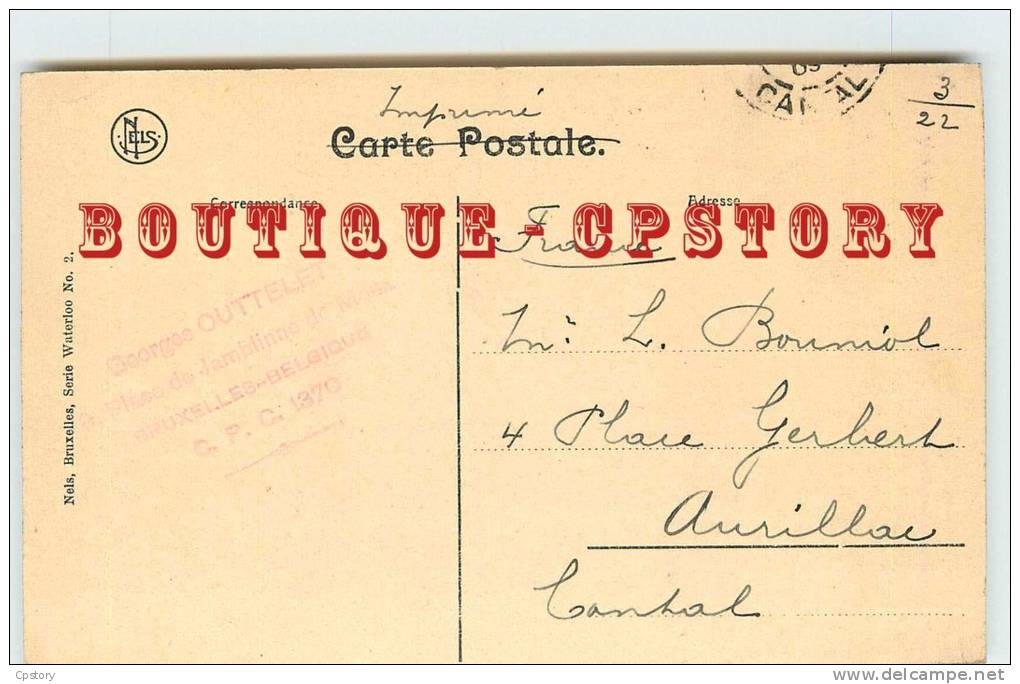 Imprimé
Carte Postale.
NELS
CANTAL
3
22
Correspondance
Adresse
BOUTIQUE - CPSTORY
France
Mr. L. Bouniol
4 Place Gerbert
Aurillac
Cantal
Georges OUTTELET
Place de Jamblinne de Meux
BRUXELLES-BELGIQUE
C. P. C. 1370
Nels, Bruxelles, Serie Waterloo No. 2.
Cpstory
www.delcampe.net